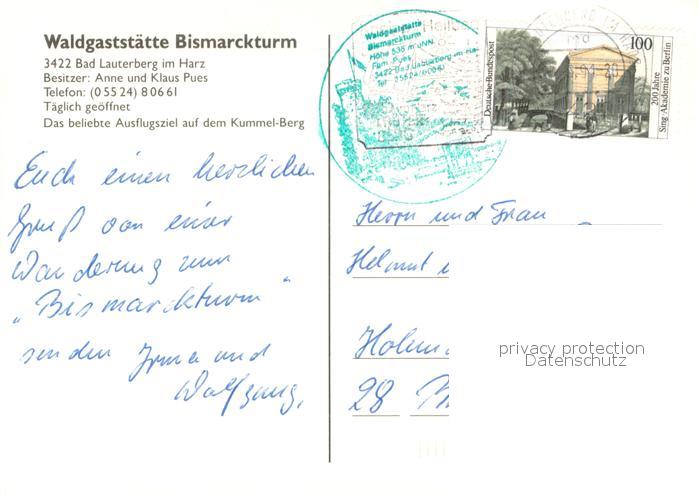 Waldgaststätte Bismarckturm
3422 Bad Lauterberg im Harz
Besitzer: Anne und Klaus Pues
Telefon: (0 55 24) 8 06 61
Täglich geöffnet
Das beliebte Ausflugsziel auf dem Kummel-Berg
Euch einen herzlichen
Gruß von einer
Wanderung zum
"Bismarckturm"
senden Irma und
Wolfgang.
Waldgaststätte
Bismarckturm
Höhe 536 m üNN.
Fam. Pues
3422 Bad Lauterberg im Harz
Tel. 05524/80661
Deutsche Bundespost
100
200 Jahre
Sing-Akademie zu Berlin
Herrn und Frau
Helmut
28
privacy protection
Datenschutz